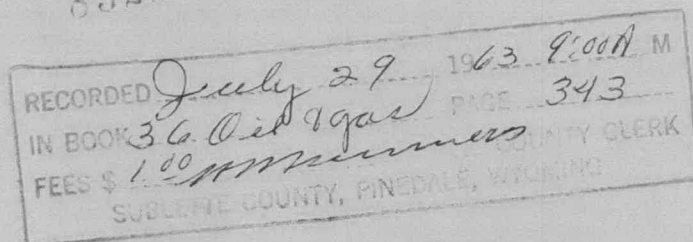 RECORDED July 29 1963 9:00 A M
IN BOOK 36 Oil & gas PAGE 343
FEES $ 1.00 COUNTY CLERK
SUBLETTE COUNTY, PINEDALE, WYOMING